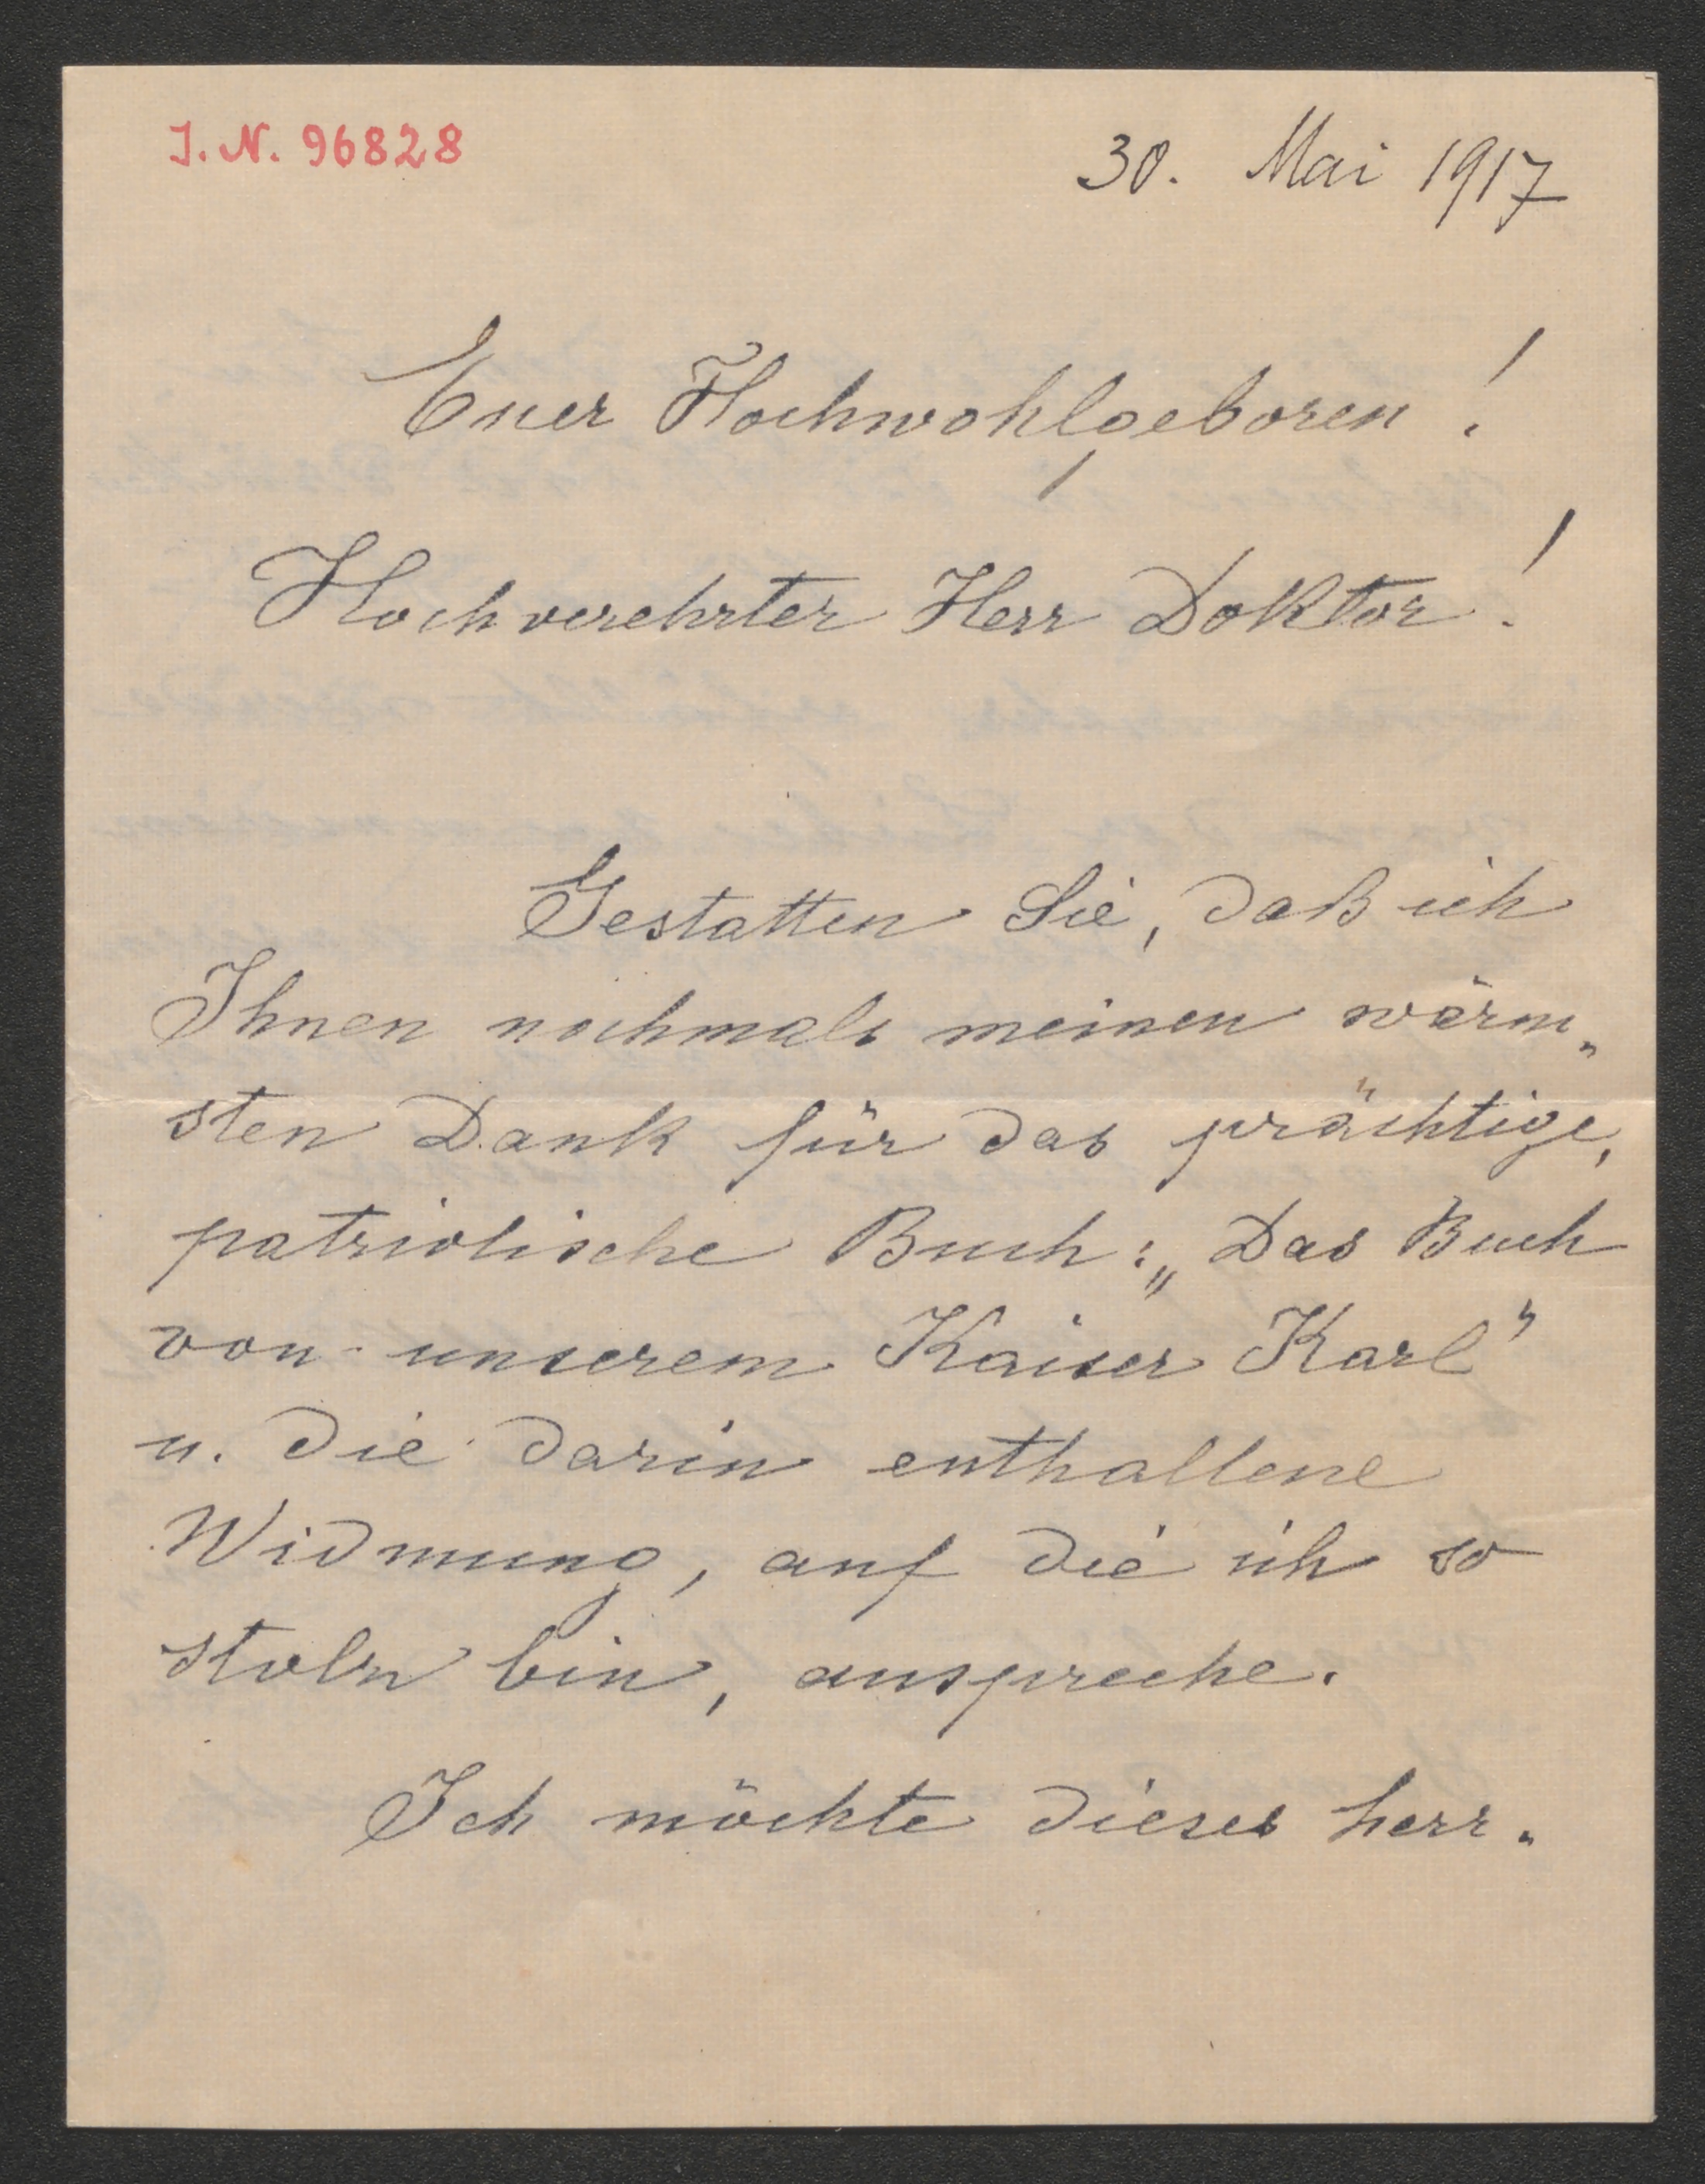 J. N. 96828
30. Mai 1917
Euer Hochwohlgeboren!
Hochverehrter Herr Doktor!
Gestatten Sie, daß ich
Ihnen nochmals meinen wärm„
sten Dank für das prächtige,
patriotische Buch: „Das Buch
von unserem Kaiser Karl"
u. die darin enthaltene
Widmung, auf die ich so
stolz bin, ausspreche.
Ich möchte dieses herr„